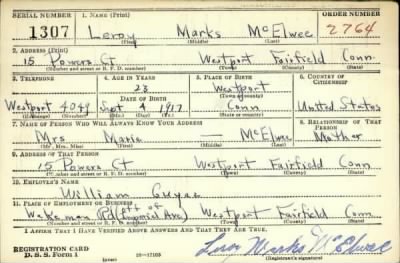 SERIAL NUMBER 1. NAME (Print) ORDER NUMBER
1307 Leroy Marks McElwee 2764
(First) (Middle) (Last)
2. ADDRESS (Print)
15 Powers Ct Westport Fairfield Conn.
(Number and street or R. F. D. number) (Town) (County) (State)
3. TELEPHONE 4. AGE IN YEARS 5. PLACE OF BIRTH 6. COUNTRY OF CITIZENSHIP
23 Westport
DATE OF BIRTH (Town or county)
Westport 4079 Sept 4 1917 Conn United States
(Exchange) (Number) (Mo.) (Day) (Yr.) (State or country)
7. NAME OF PERSON WHO WILL ALWAYS KNOW YOUR ADDRESS 8. RELATIONSHIP OF THAT PERSON
Mrs Marie — McElwee Mother
(Mr., Mrs., Miss) (First) (Middle) (Last)
9. ADDRESS OF THAT PERSON
15 Powers Ct Westport Fairfield Conn
(Number and street or R. F. D. number) (Town) (County) (State)
10. EMPLOYER'S NAME
William
11. PLACE OF EMPLOYMENT OR BUSINESS
Wakeman Pl (off of Imperial Ave) Westport Fairfield Conn
(Number and street or R. F. D. number) (Town) (County) (State)
I AFFIRM THAT I HAVE VERIFIED ABOVE ANSWERS AND THAT THEY ARE TRUE.
REGISTRATION CARD
D. S. S. Form 1 (over) 16—17105 Leroy Marks McElwee
(Registrant's signature)